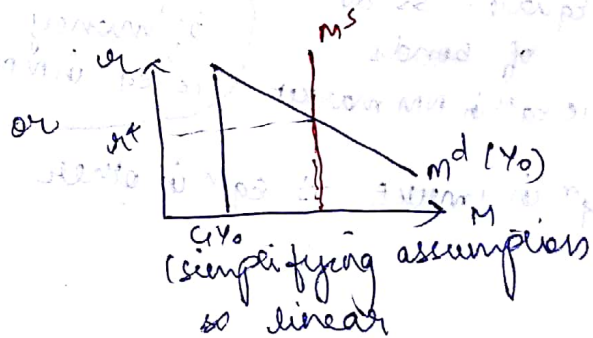 Mˢ
r
or r*
Mᵈ (Y₀)
M
C₁Y₀
(simplifying assumption
so linear